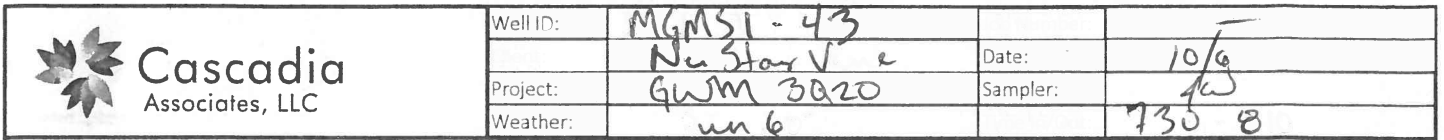 Cascadia
Associates, LLC
Well ID: MGMS1-43
NuStar V Date: 10/9
Project: GWM 3Q20 Sampler:
Weather: 730